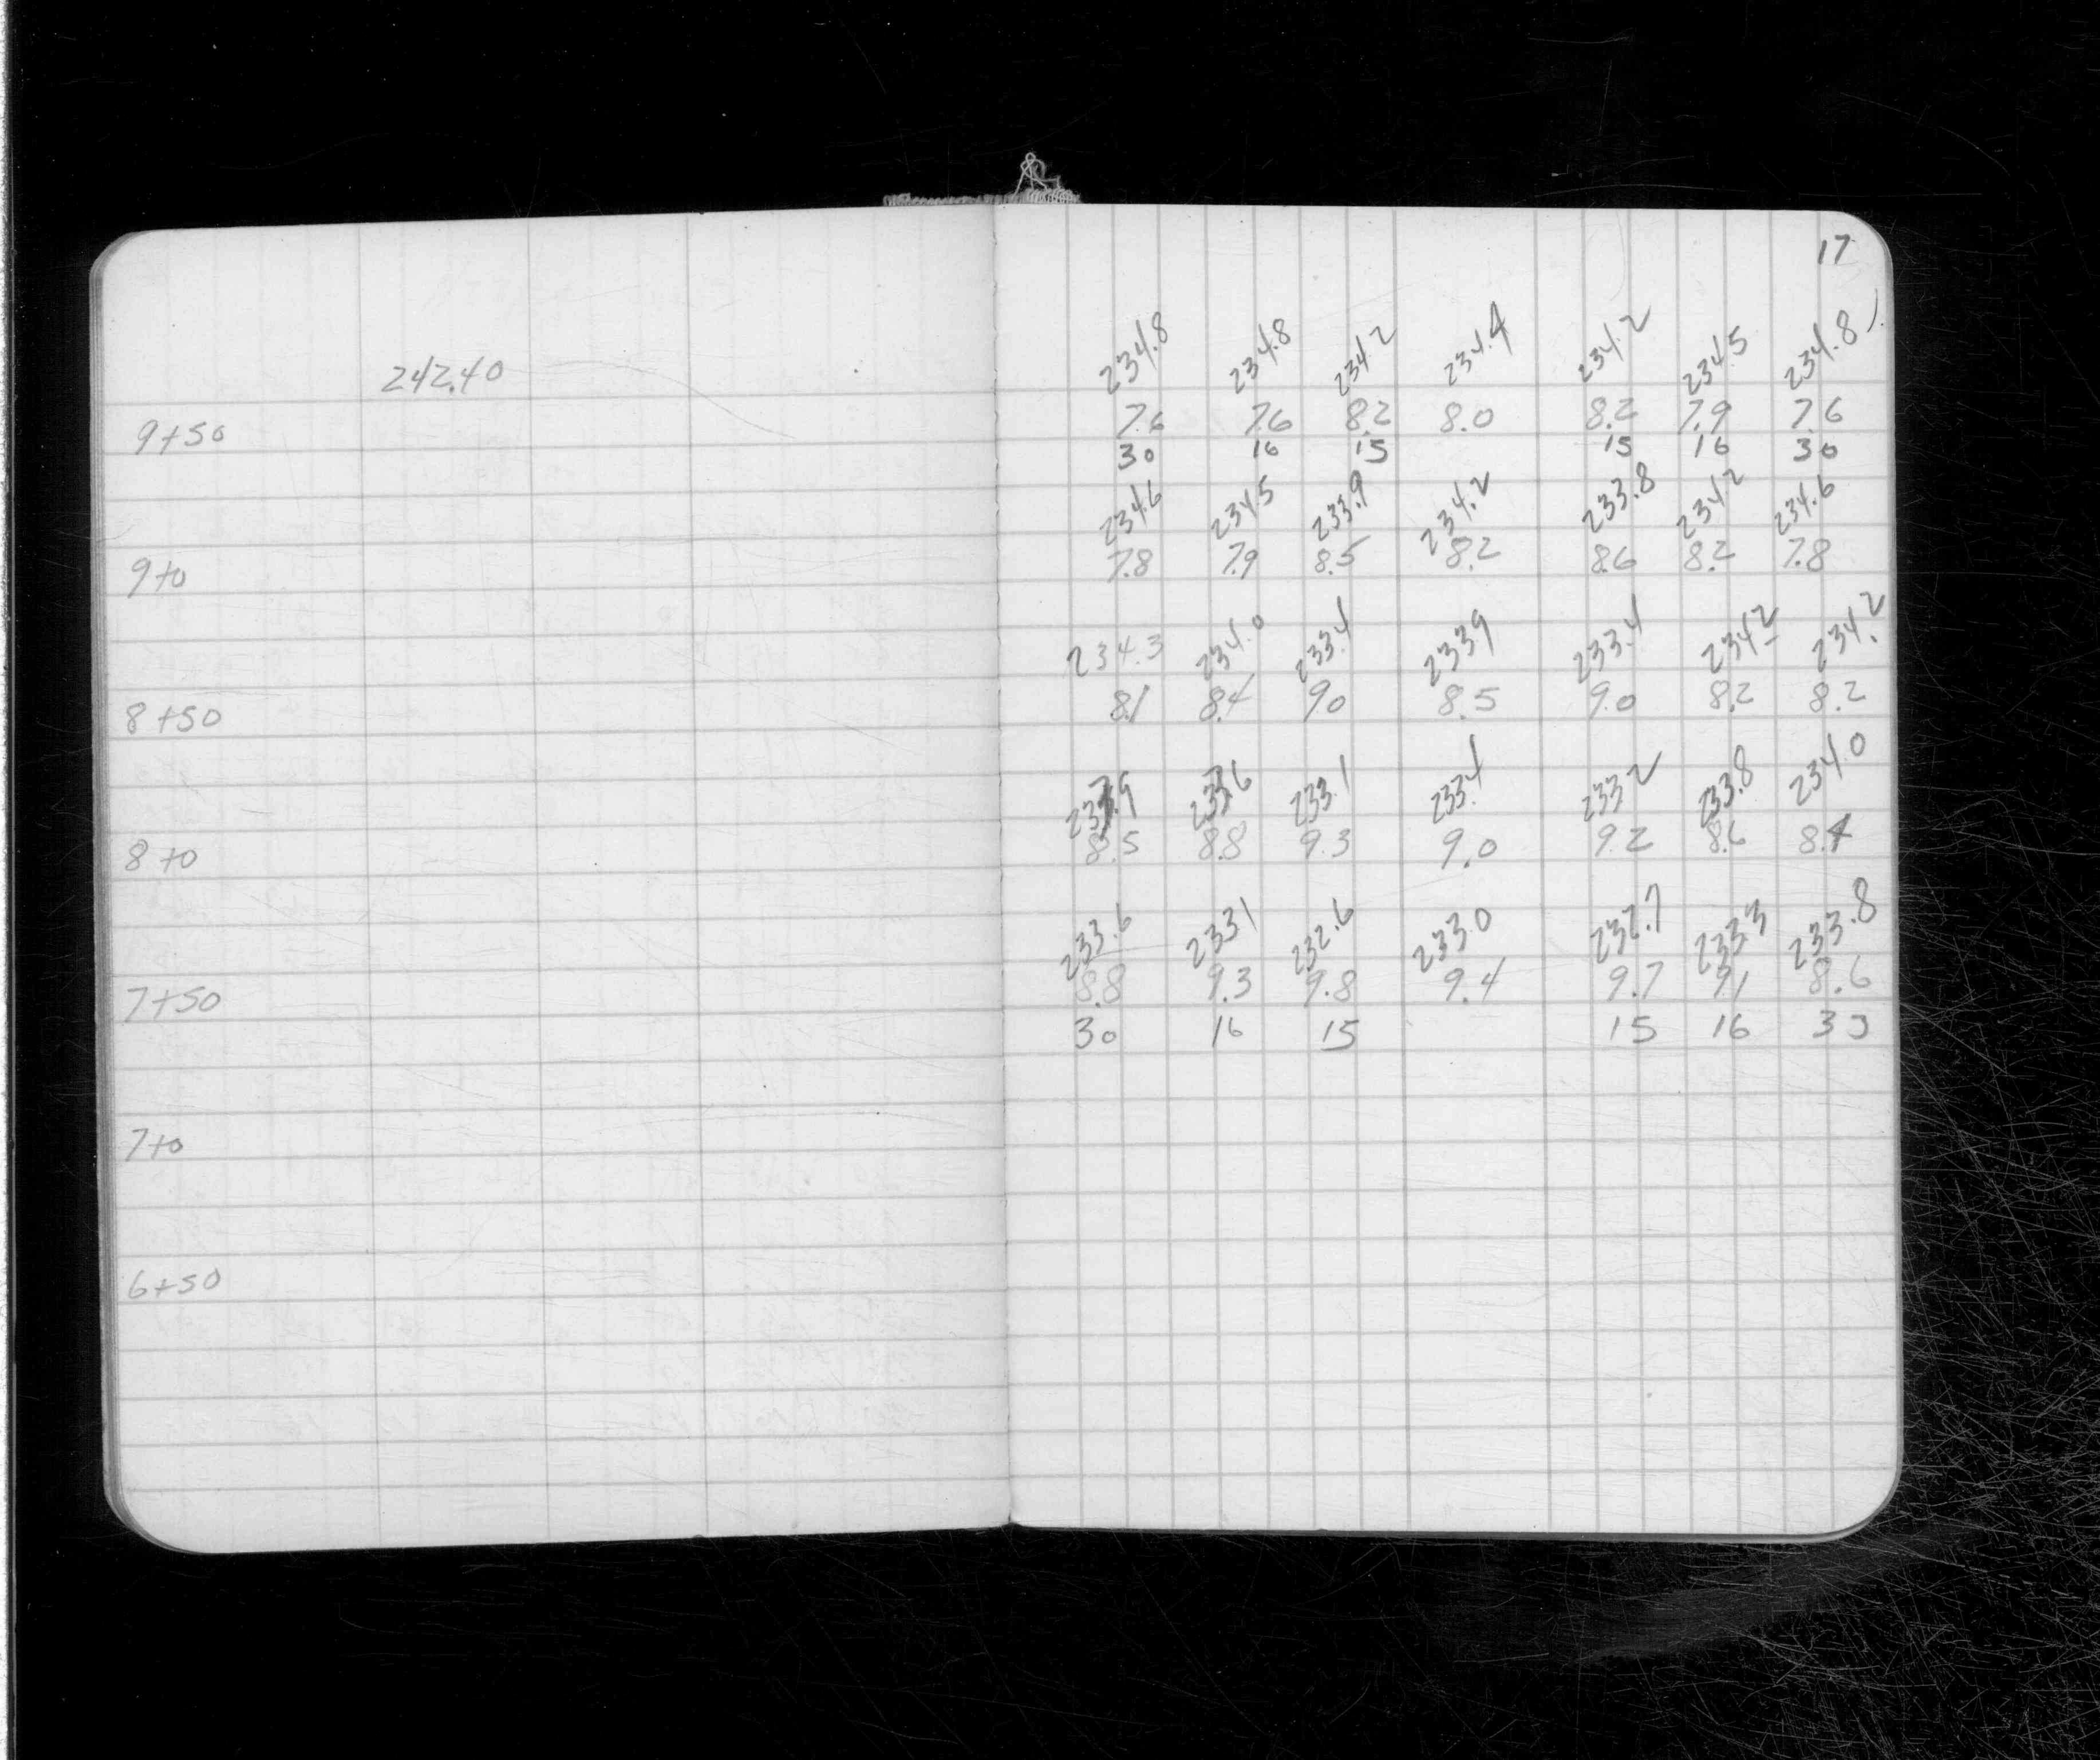 17
242.40
234.8 234.8 234.2 234.4 234.2 234.5 234.8
9+50 7.6 7.6 8.2 8.0 8.2 7.9 7.6
30 16 15 15 16 30
234.6 234.5 233.9 234.2 233.8 234.2 234.6
9+0 7.8 7.9 8.5 8.2 8.6 8.2 7.8
234.3 234.0 233.4 2339 233.4 2342 234.2
8+50 8.1 8.4 90 8.5 9.0 8.2 8.2
233.9 233.6 233.1 233.4 233.2 233.8 234.0
8+0 8.5 8.8 9.3 9.0 9.2 8.6 8.4
233.6 2331 232.6 233.0 232.7 2333 233.8
7+50 8.8 9.3 9.8 9.4 9.7 9.1 8.6
30 16 15 15 16 30
7+0
6+50